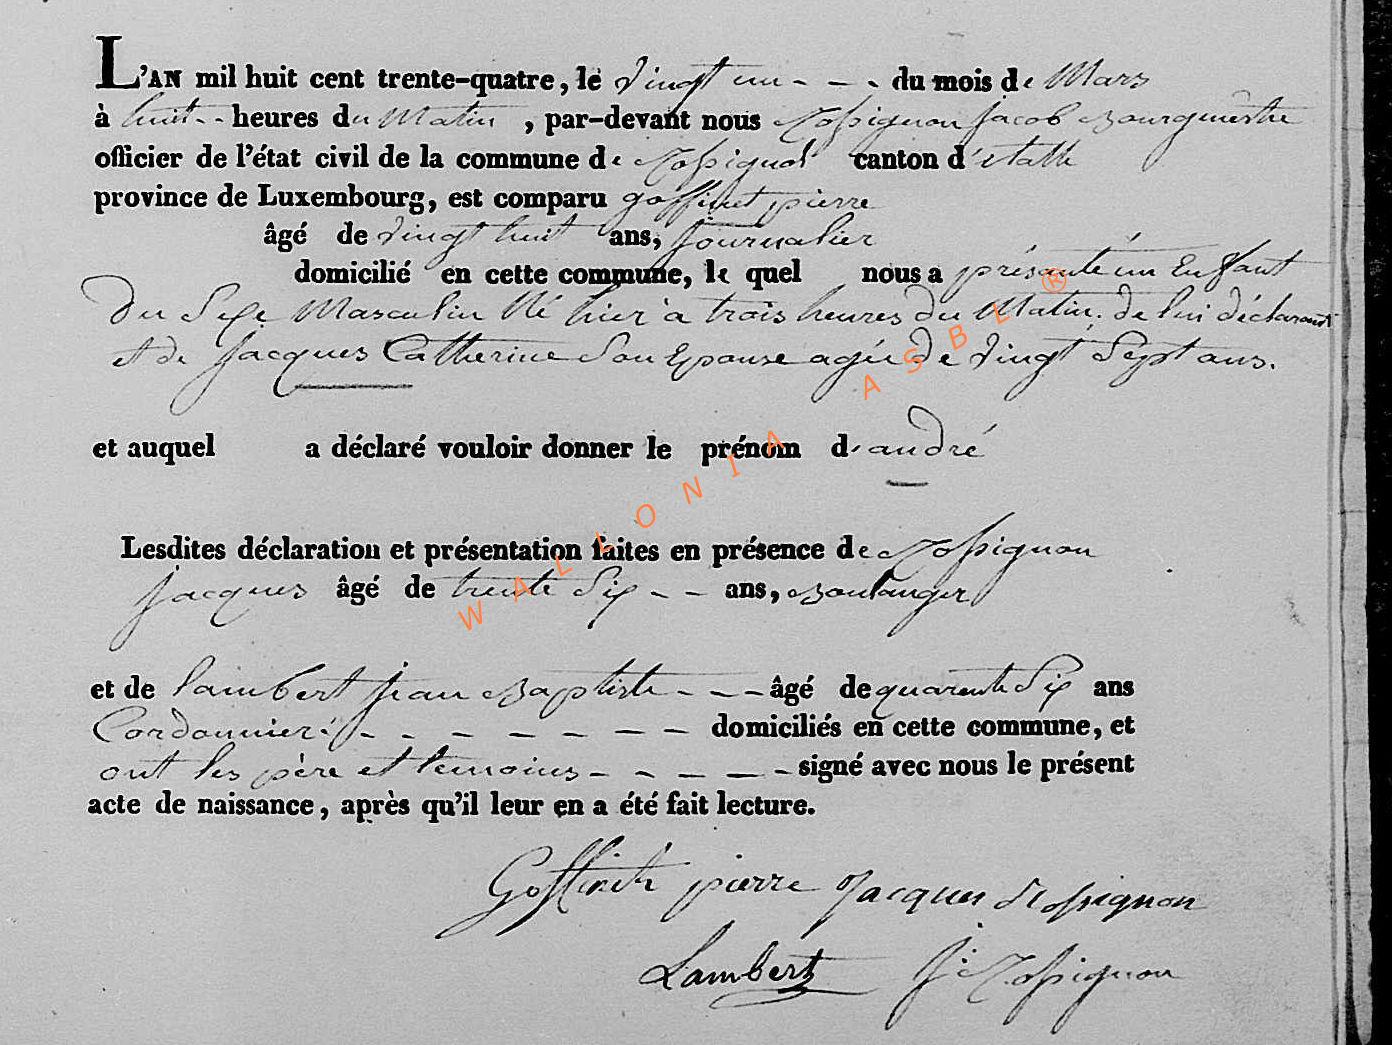 L'AN mil huit cent trente-quatre, le vingt un - - - du mois de Mars
à huit - - heures du Matin , par-devant nous Rossignon Jacob Bourgmestre
officier de l'état civil de la commune de Rossignol canton d'etalle
province de Luxembourg, est comparu goffinet pierre
âgé de vingt huit ans, journalier
domicilié en cette commune, le quel nous a présenté un Enfant
Du Sexe Masculin Né hier à trois heures du Matin, de lui déclarant
et de Jacques Catherine Son Epouse agée de vingt Sept ans.
et auquel a déclaré vouloir donner le prénom d'andré
Lesdites déclaration et présentation faites en présence de Rossignon
Jacques âgé de trente Six - - ans, Boulanger
et de lambert jean Baptiste - - - âgé de quarente Six ans
Cordonnier - - - - - - - - domiciliés en cette commune, et
ont les père et temoins - - - - - signé avec nous le présent
acte de naissance, après qu'il leur en a été fait lecture.
Goffinet pierre Jacques Rossignon
Lambert J: Rossignon
WALLONIA ASBL ®